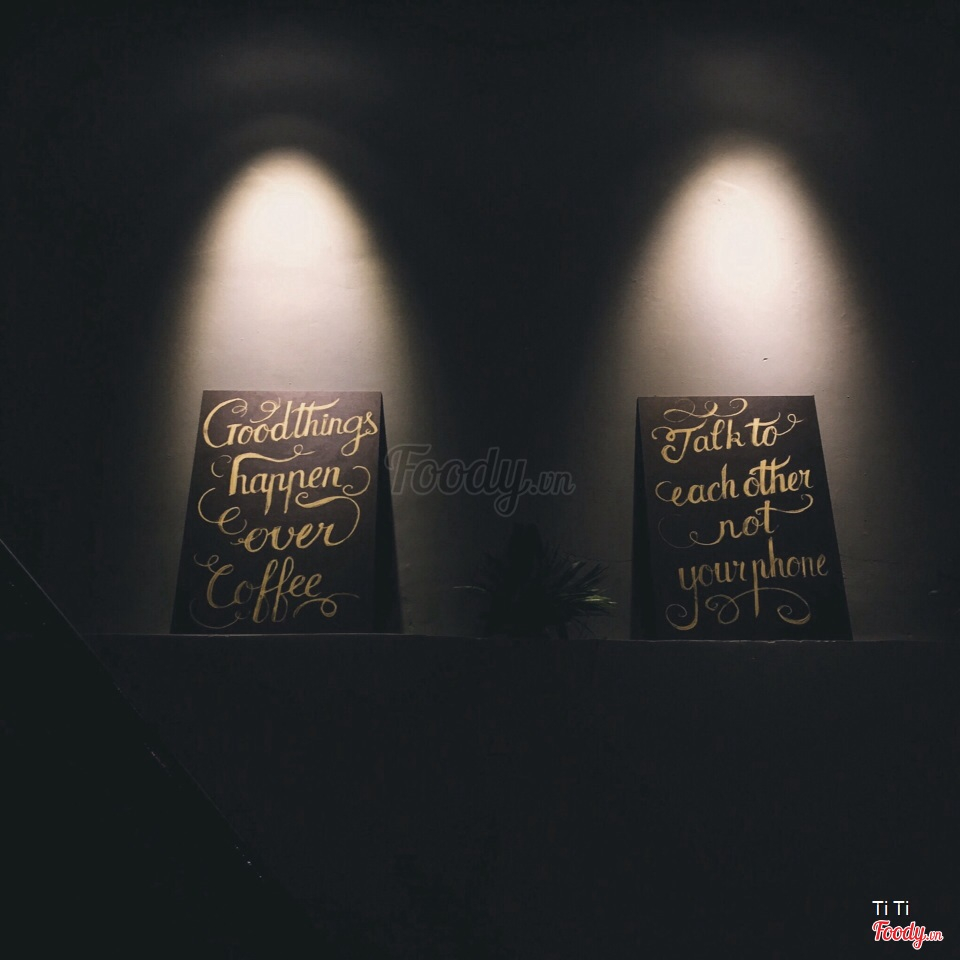 Good things
happen
over
Coffee
Talk to
each other
not
your phone
Foody.vn
Ti Ti
Foody.vn